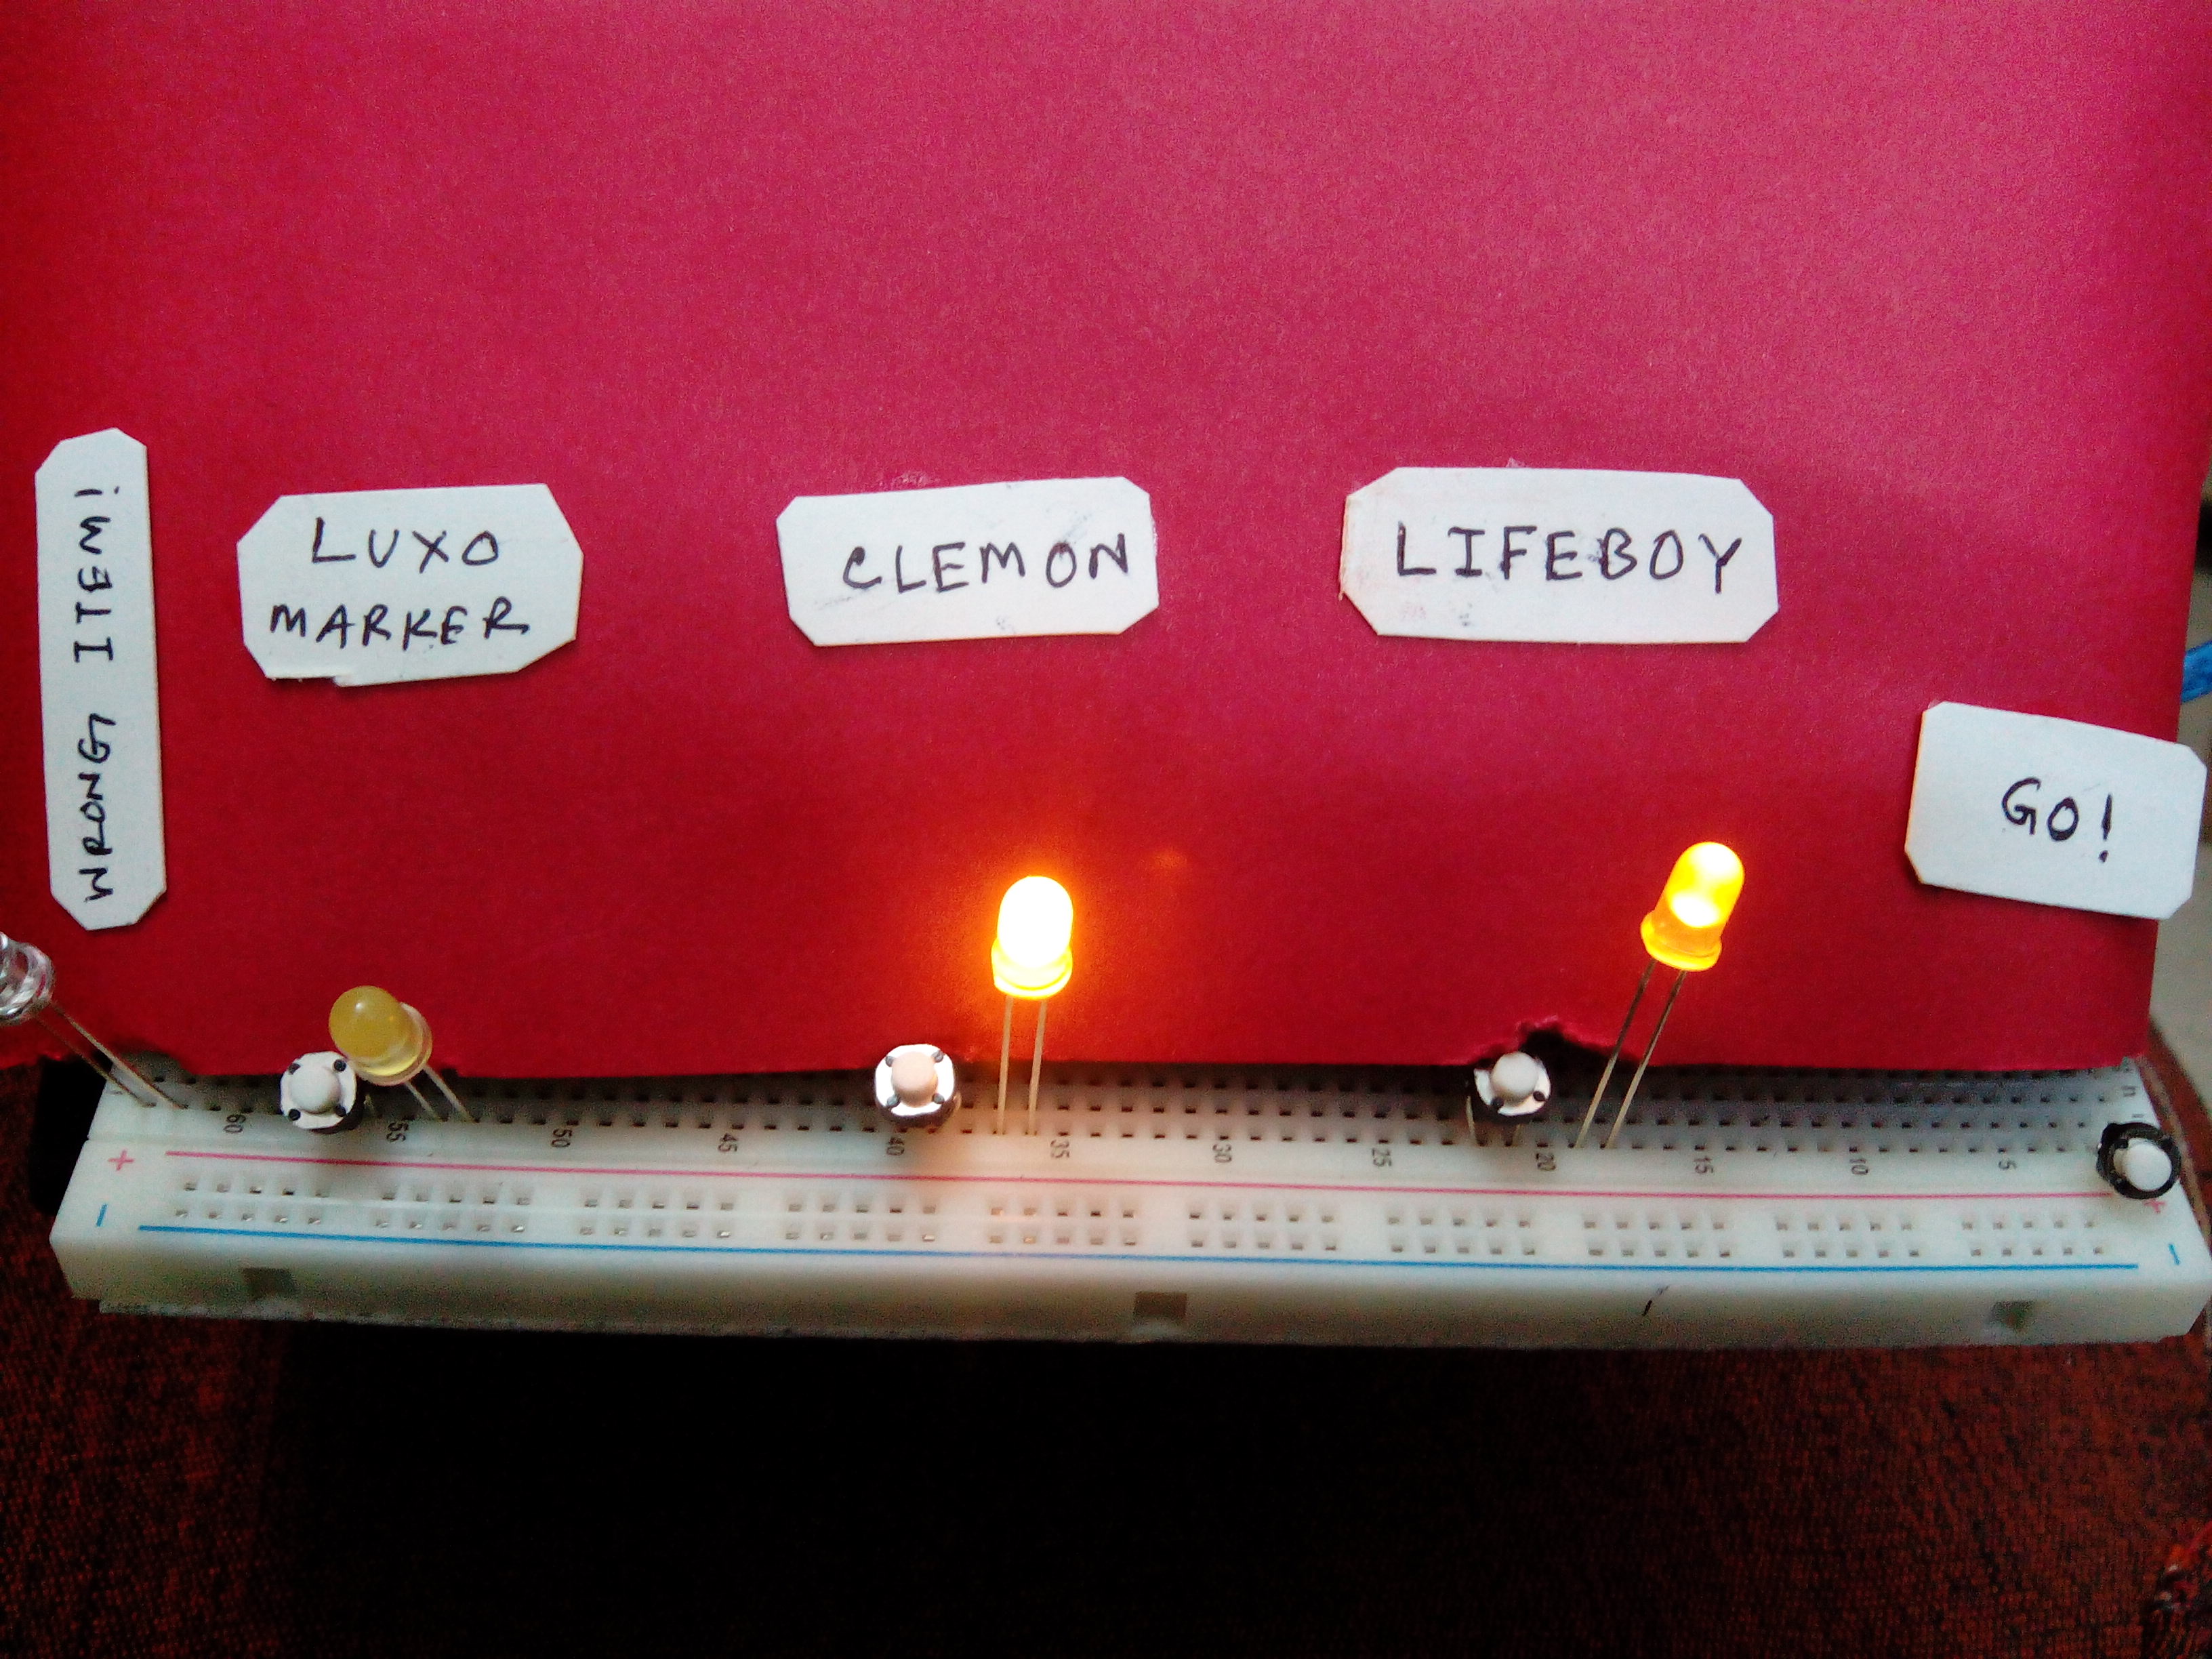 WRONG ITEM!
LUXO
MARKER
CLEMON
LIFEBOY
GO!
60 55 50 45 40 35 30 25 20 15 10 5
+ +
- -